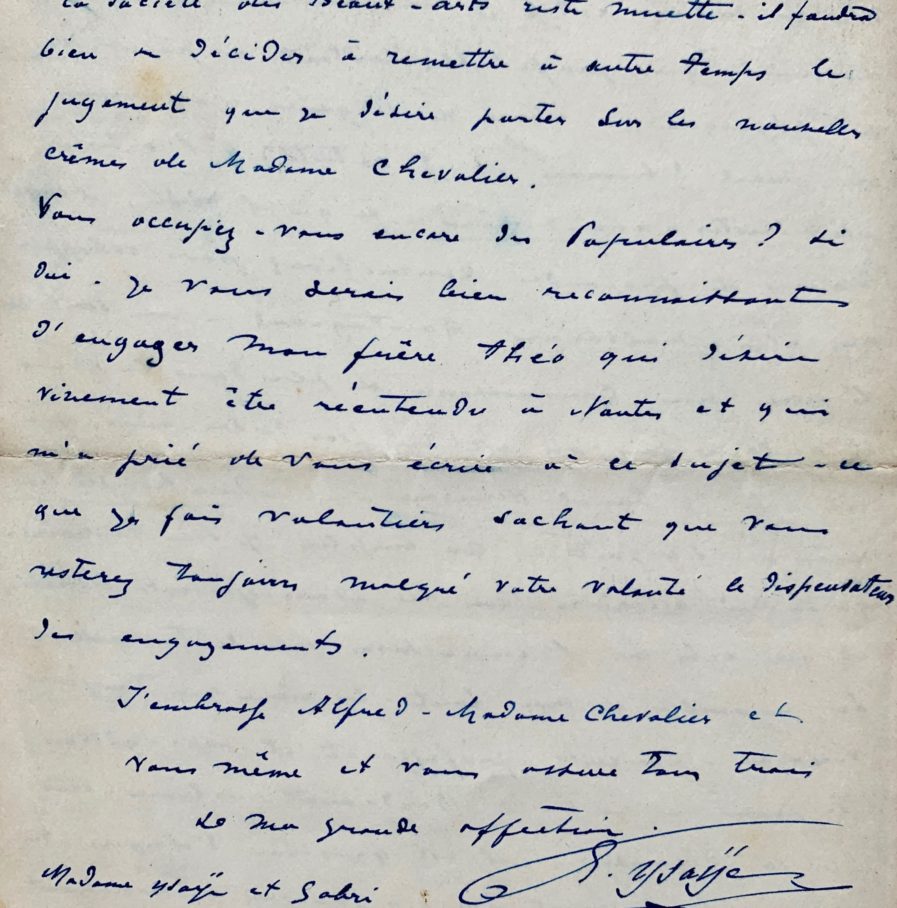 la Société des Beaux-Arts reste muette - il faudra
bien se décider à remettre à autre temps le
jugement que je désire porter sur les nouvelles
crêmes de Madame Chevalier.
Vous occupiez-vous encore des Populaires? Si
Oui - je vous serais bien reconnaissant
d'engager mon frère Théo qui désire
vivement être réentendu à Nantes et qui
m'a prié de vous écrire à ce sujet - ce
que je fais volontiers sachant que vous
resterez toujours malgré votre volonté le dispensateur
des engagements.
J'embrasse Alfred - Madame Chevalier et
vous même et vous assure tous trois
de ma grande affection.
E. Ysaÿe
Madame Ysaÿe et Gabri